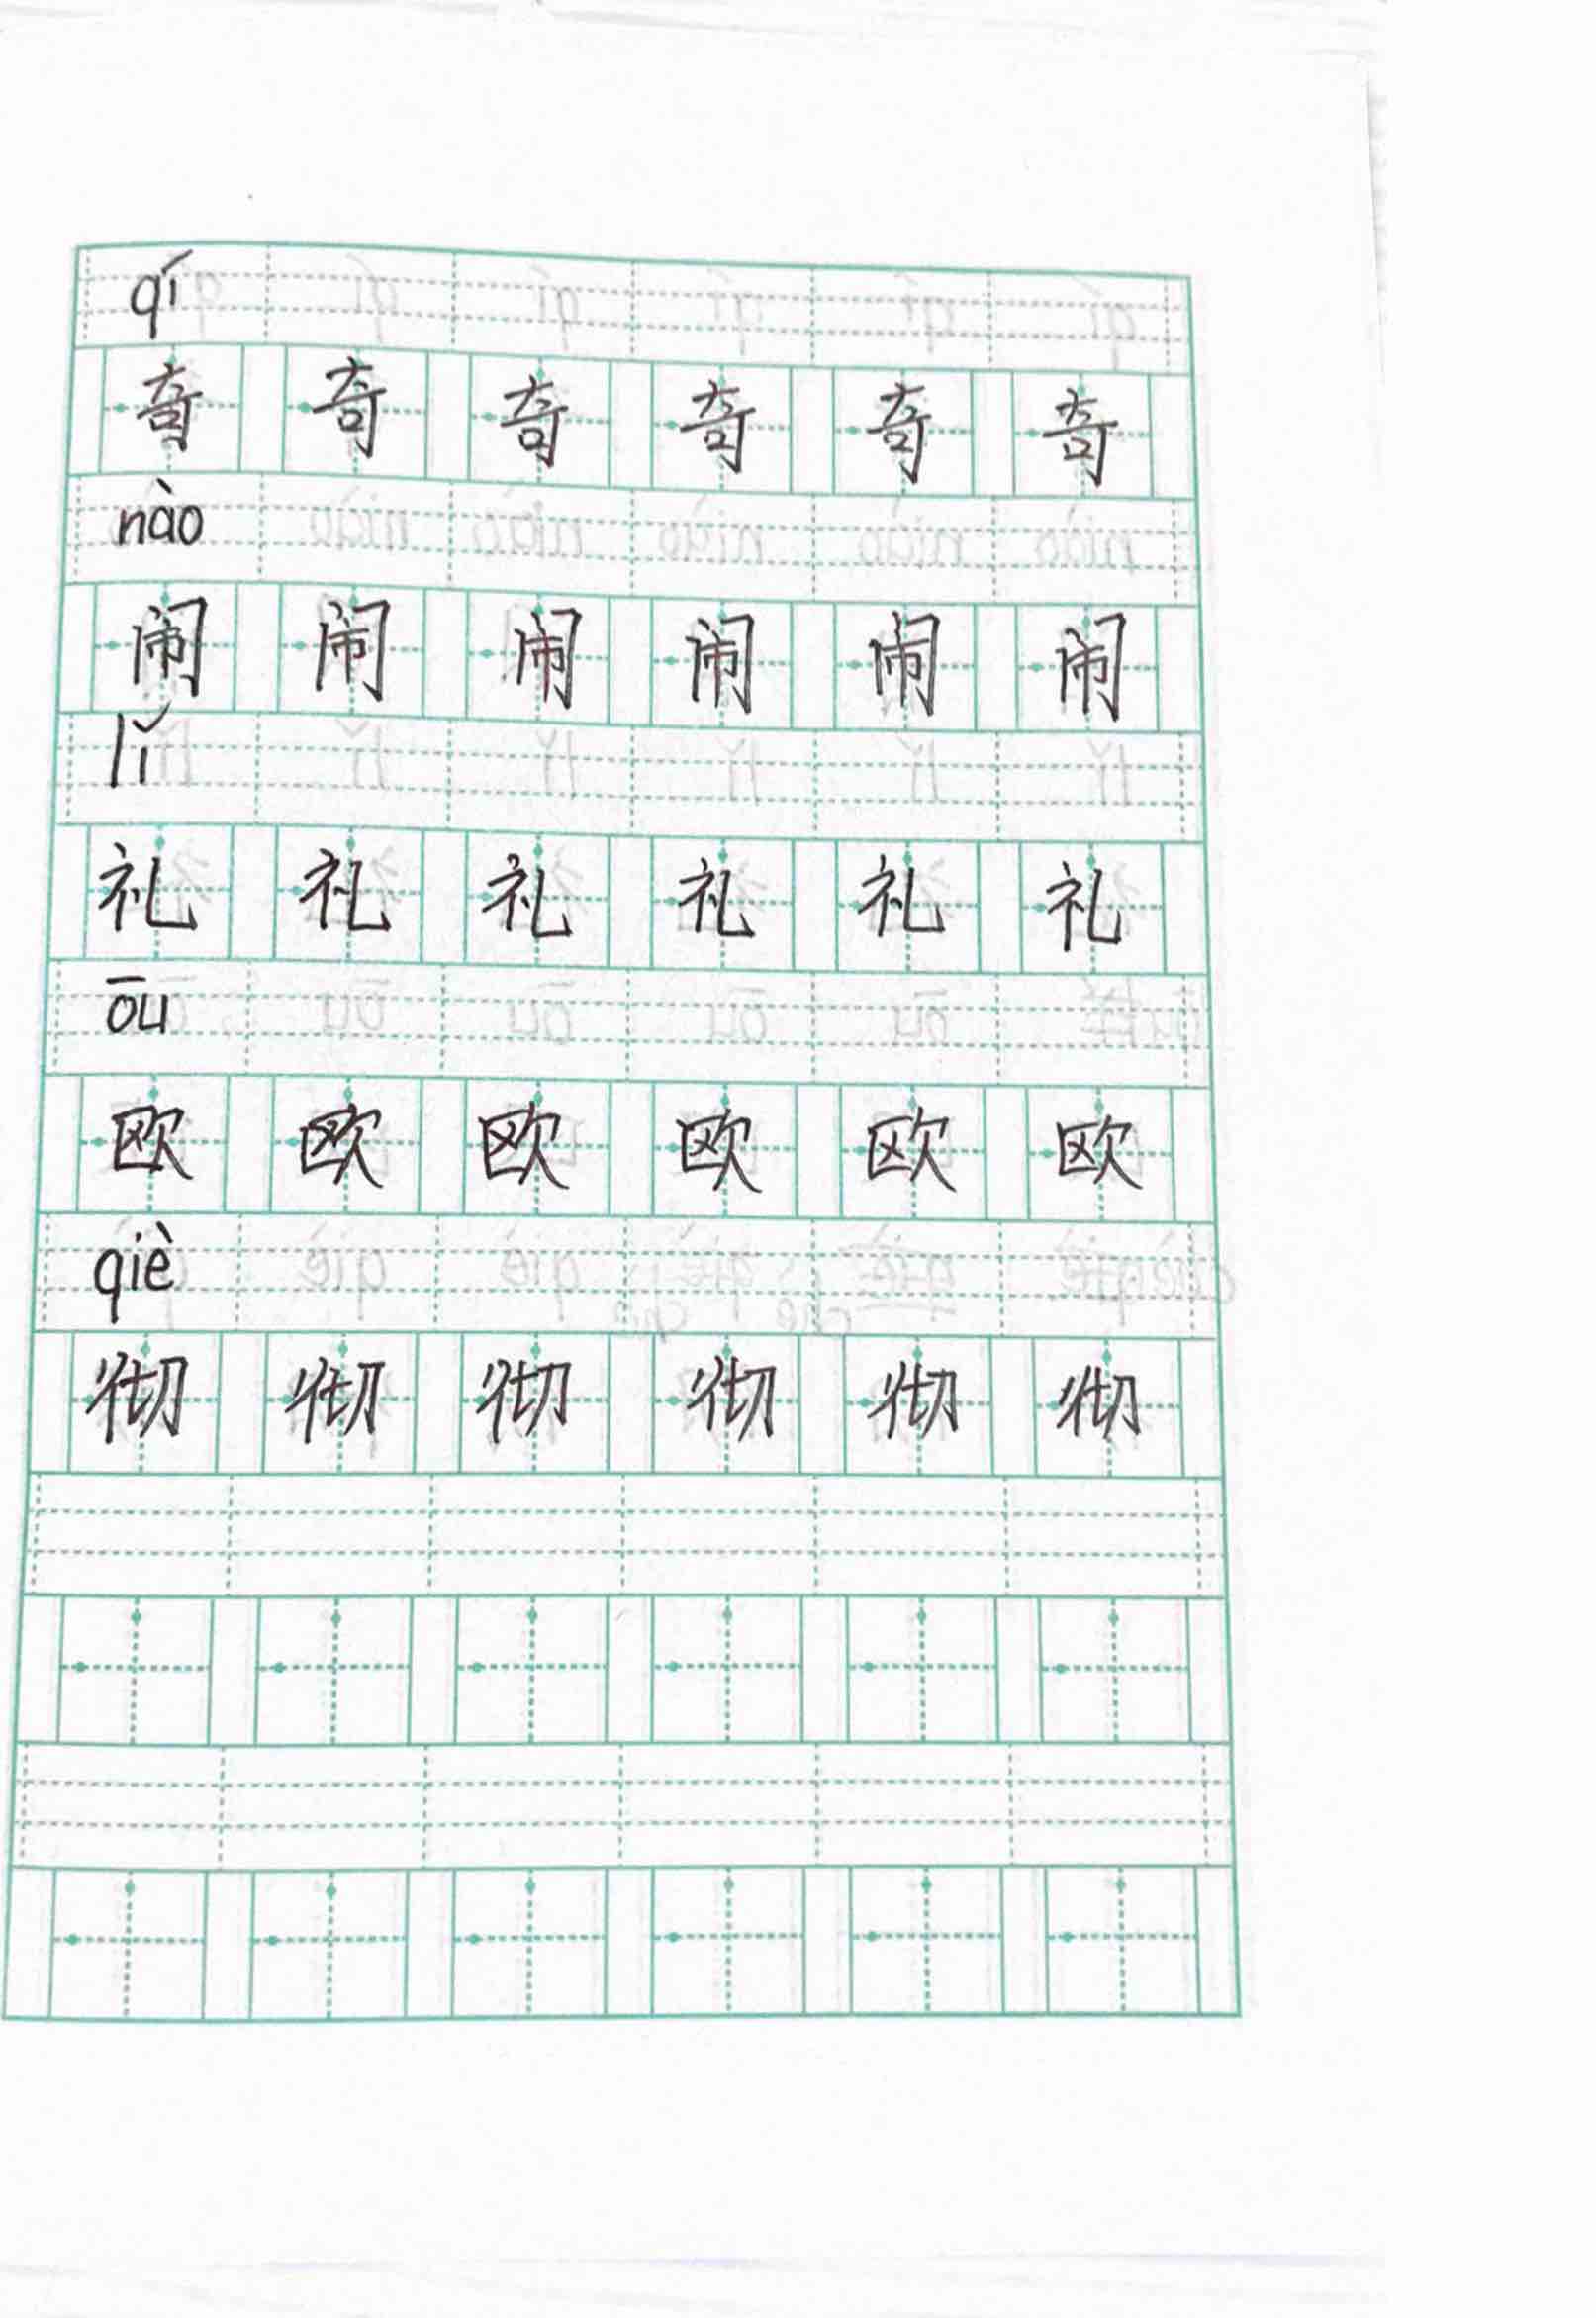 qí
奇 奇 奇 奇 奇 奇
nào
闹 闹 闹 闹 闹 闹
lǐ
礼 礼 礼 礼 礼 礼
ōu
欧 欧 欧 欧 欧 欧
qiè
彻 彻 彻 彻 彻 彻